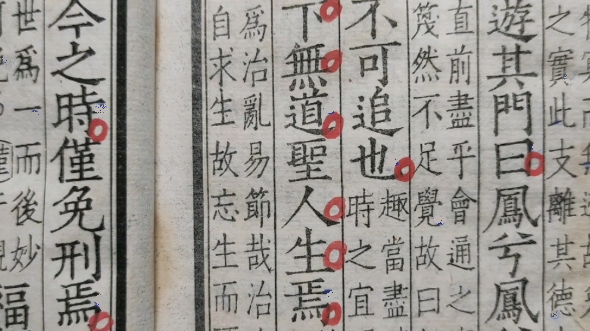 之實此支離其德
遊其門曰鳳兮鳳
直前盡乎會通之
篾然不足覺故曰
不可追也
趣當盡
時之宜
下無道聖人生焉
爲治亂易節哉治
自求生故忘生而
今之時僅免刑焉
世爲一而後妙
福